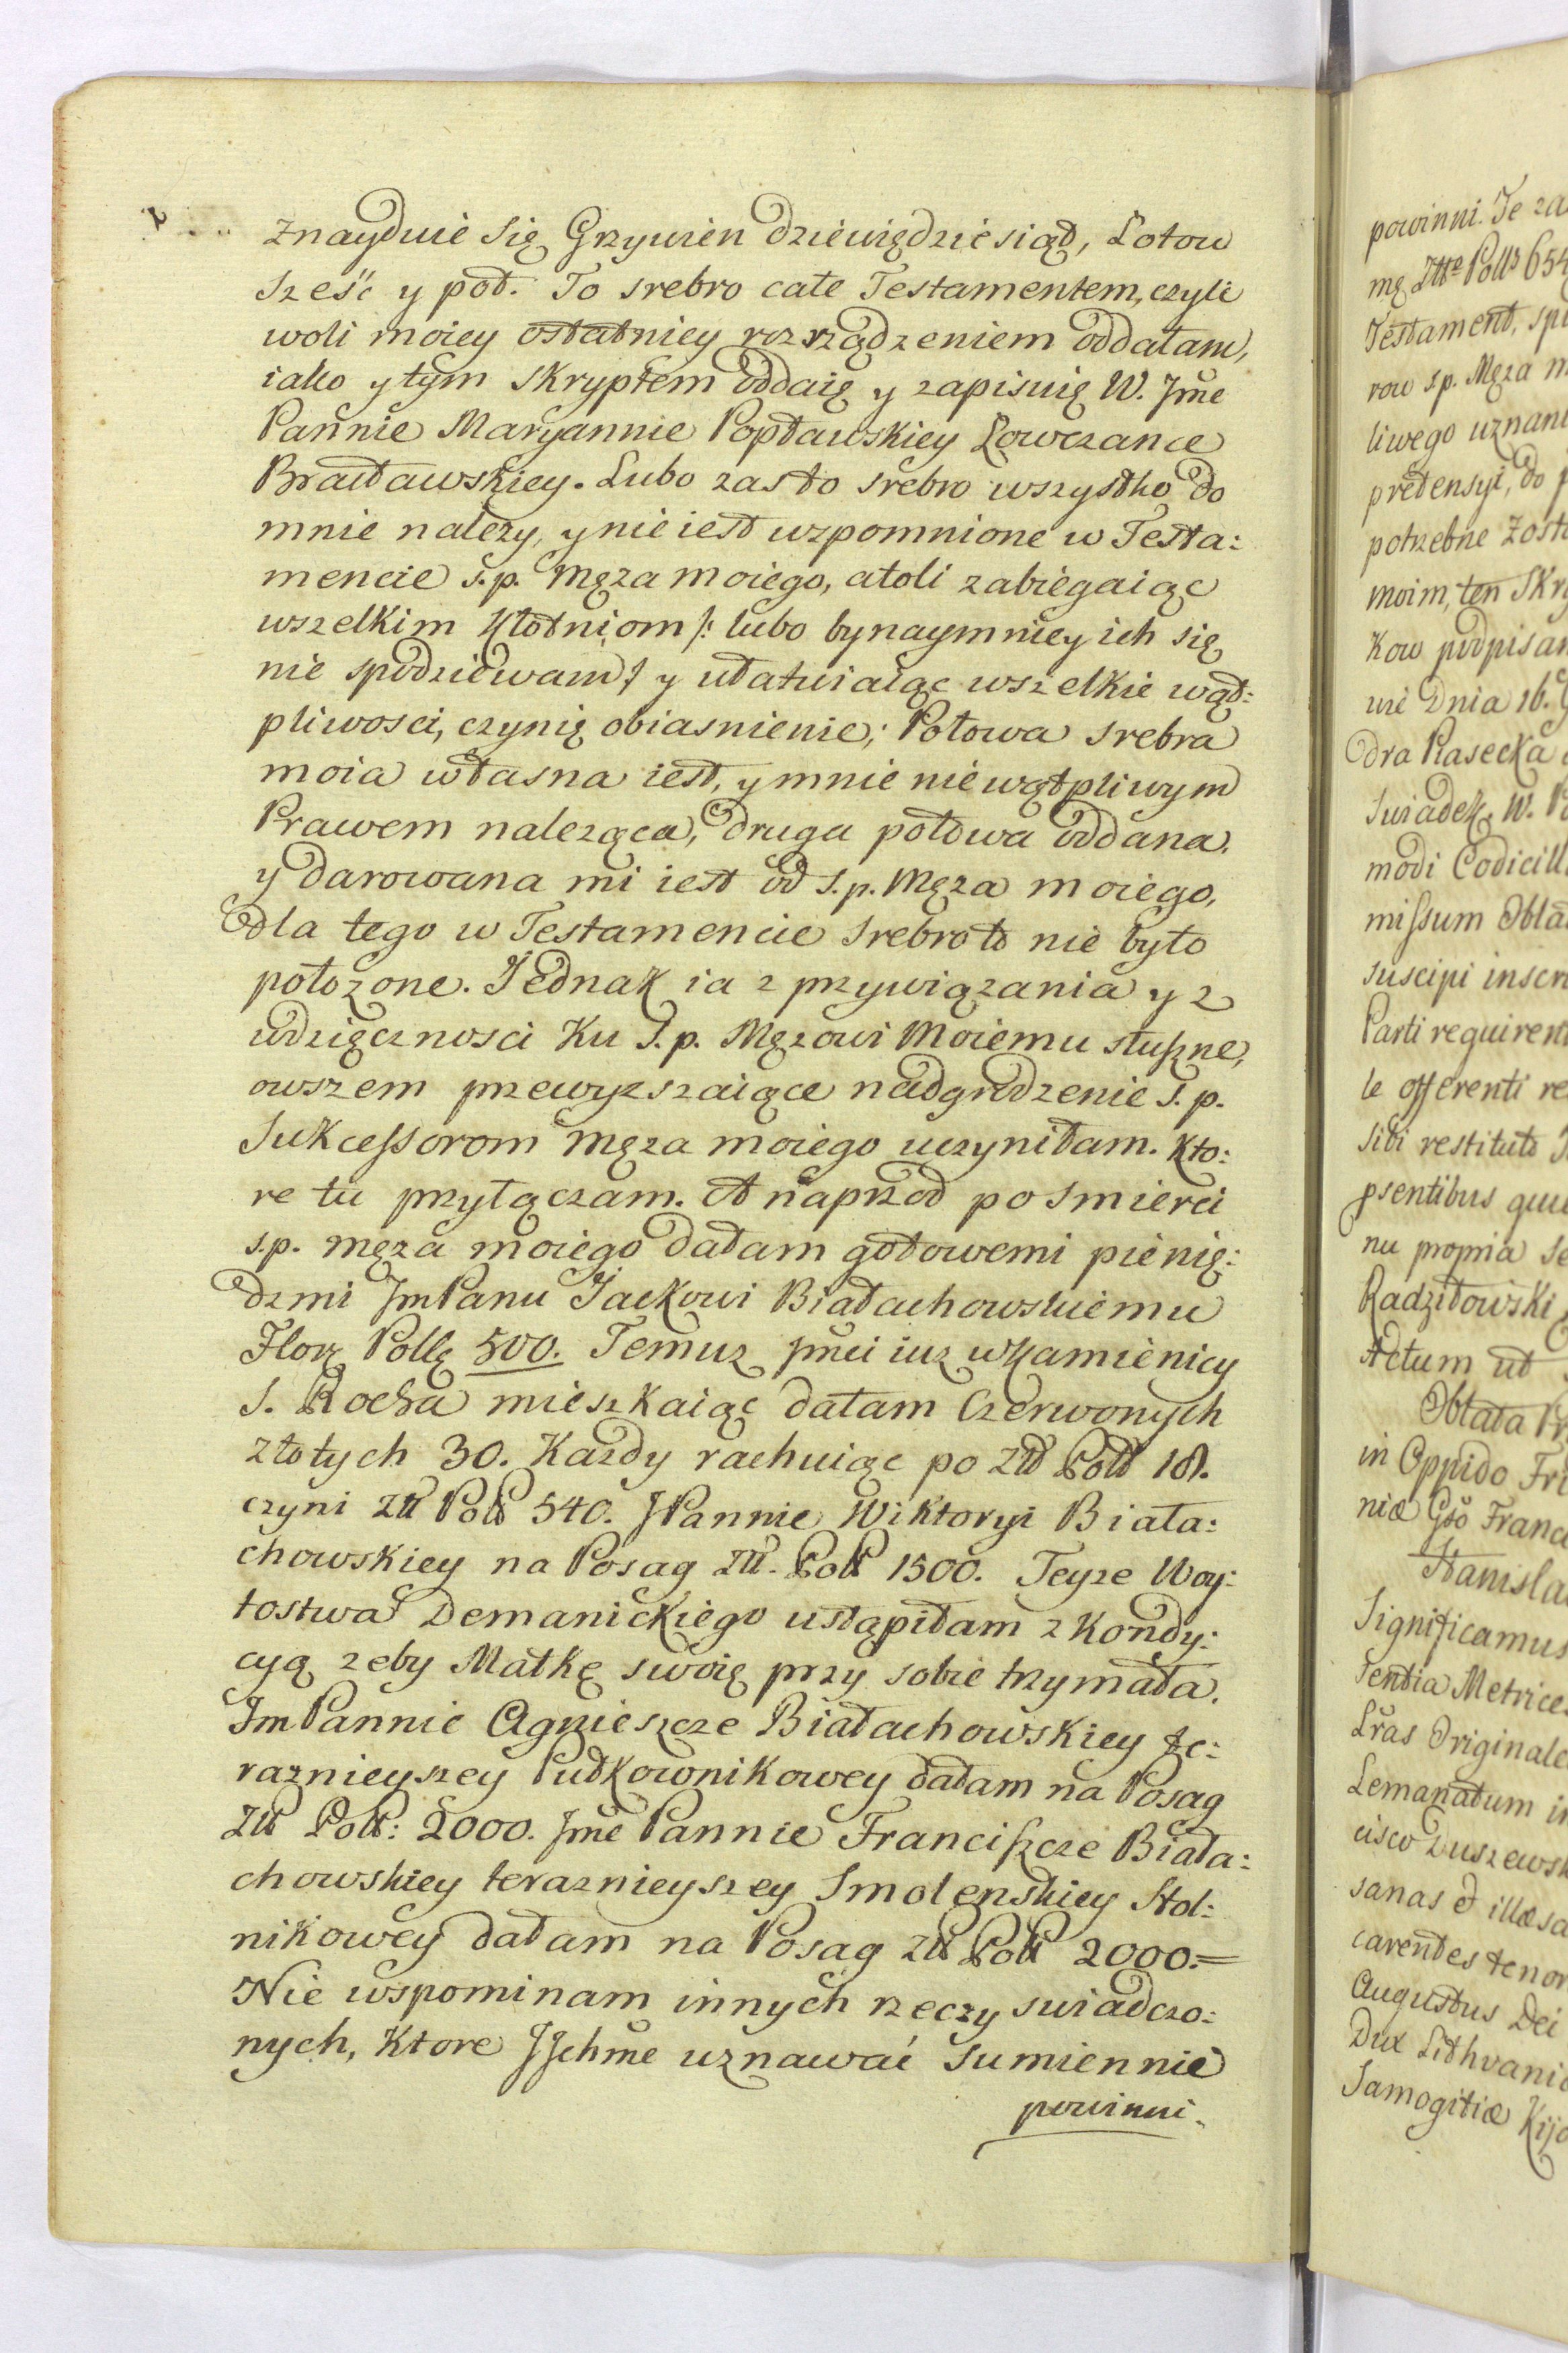 znayduie się Grzywien dziewiędziesiąt, Łotow
sześć y poł. To srebro całe Testamentem, czyli
woli moiey ostatniey rozrządzeniem oddałam,
iako y tym skryptem oddaię y zapisuię W. Jme
Pannie Maryannie Popławskiey Łowczance
Bracławskiey. Lubo zas to srebro wszystko do
mnie nalezy, y nie iest wzpomnione w Testa:
mencie s.p. Męza moiego, atoli zabiegaiąc
wszelkim kłotniom /: lubo bynaymniey ich się
nie spodziewam / y ułatwiaiąc wszelkie wąt:
pliwosci, czynię obiasnienie; Połowa srebra
moia własna iest, y mnie niewątpliwym
Prawem naleząca, druga połowa oddana.
y darowana mi iest od s.p. Męza moiego,
dla tego w Testamencie srebro to nie było
położone. Jednak ia z przywiązania y z
wdzięcznosci ku S.p. Męzowi Moiemu słuszne,
owszem przewyzszaiące nadgrodzenie s.p.
Sukcessorom męza moiego uczyniłam. Kto:
re tu przyłączam. A naprzod po smierci
s.p. męza moiego dałam gotowemi pienię:
dzmi Jm Panu Jackowi Białachowskiemu
Flor Polle 500. Temuz Jmci iuz w kamienicy
S. Rocha mieszkaiąc dałam Czerwonych
złotych 30. Kazdy rachuiąc po Złł Poll 18.
czyni Złł Poll 540. JPannie Wiktoryi Biała:
chowskiey na Posag Złł. Poll 1500. Teyze Woy:
tostwa Demanickiego ustąpiłam z kondy:
cyą zeby Matkę swoię przy sobie trzymała.
Jm Pannie Agnieszcze Białachowskiey te:
raznieyszey Pułkownikowey dałam na Posag
Złł Poll: 2000. Jme Pannie Franciszcze Biała:
chowskiey teraznieyszey Smolenskiey Stol:
nikowey dałam na Posag Złł Poll 2000.=
Nie wspominam innych rzeczy swiadczo:
nych, ktore JJchme uznawać sumiennie
powinni.
powinni. Te za
mę Złłe Polls 654
Testament, spi
row s.p. Męza m
liwego uznani
pretensyi, do p
potrzebne zost
moim, ten Skry
kow podpisan
wie Dnia 16.
dra Rasecka
Swiadek. W. P
modi Codicill
missum Oblat
suscipi inscri
Parti requirent
le offerenti re
sibi restituto
psentibus qui
nu propria se
Radziłowski
Actum ut
Oblata Pr
in Oppido Fri
niæ Gso Franc
Stanisla
Significamus
sentia Metrices
Lras Originale
Lemanatum i
cisco Duszewsk
sanas & illæsa
carentes tenor
Augustus Dei
Dux Lithvaniæ
Samogitiæ Kijo